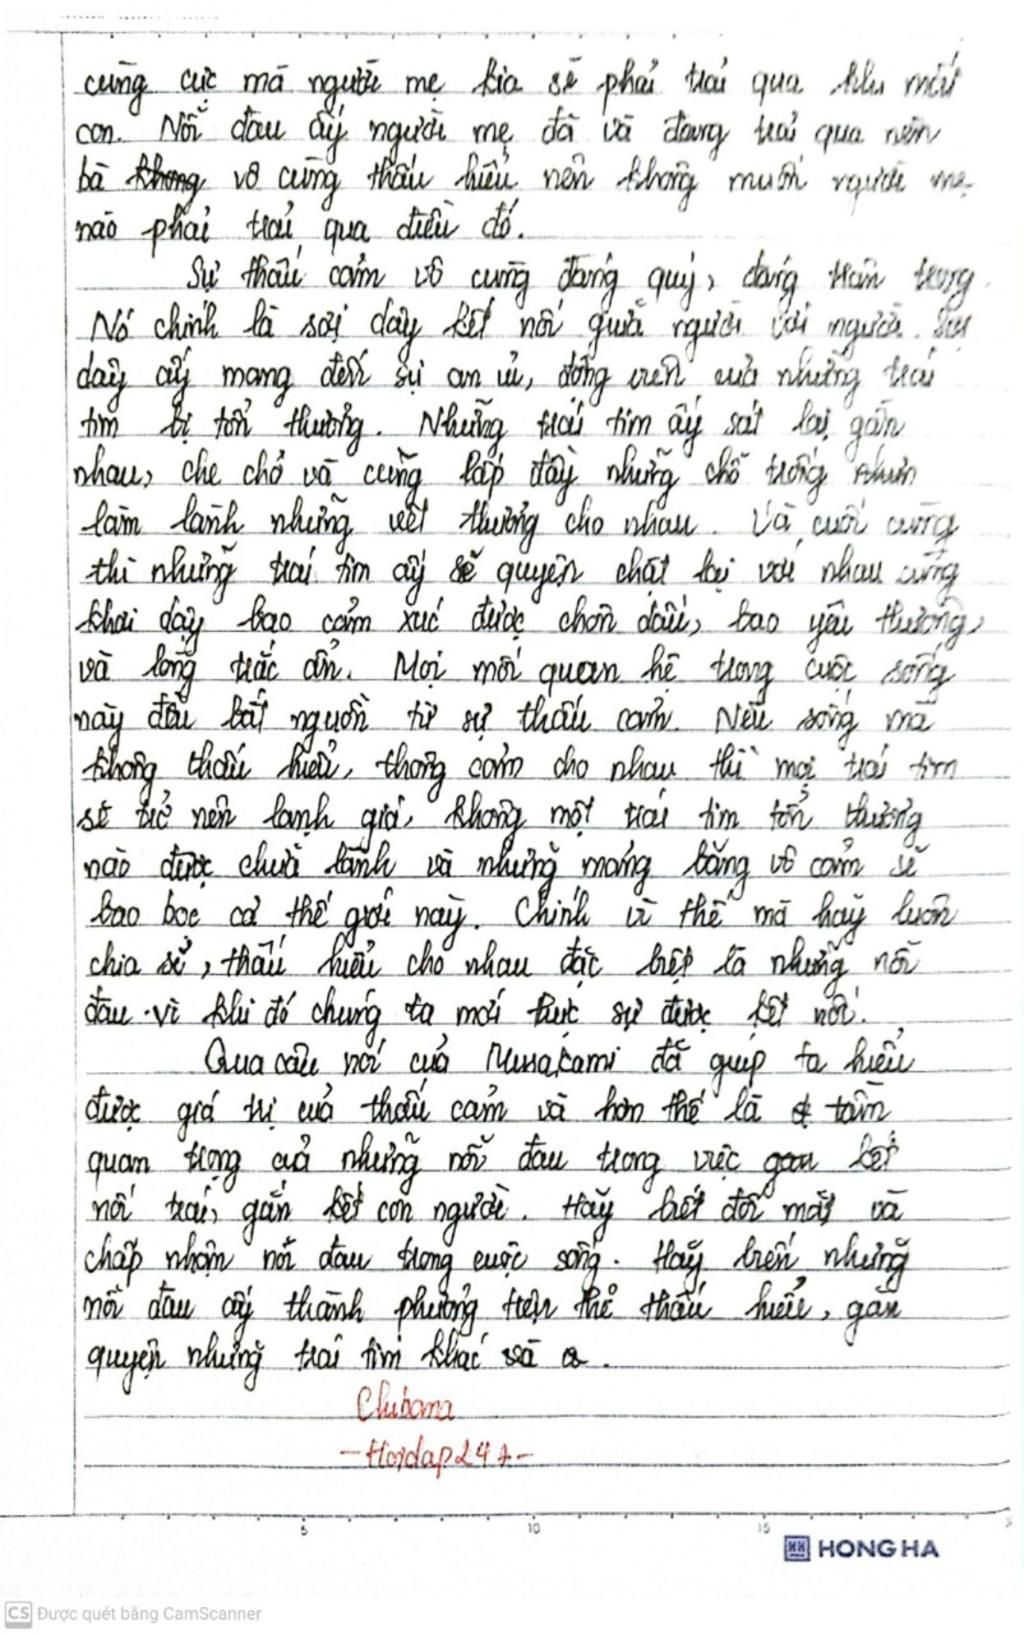 cùng cực mà người mẹ kia sẽ phải trải qua khi mất
con. Nỗi đau ấy người mẹ đã và đang trải qua nên
bà không vô cùng thấu hiểu nên không muốn người mẹ
nào phải trải qua điều đó.
Sự thấu cảm vô cùng đáng quý, đáng trân trọng.
Nó chính là sợi dây kết nối giữa người với người. Sợi
dây ấy mang đến sự an ủi, động viên của những trái
tim bị tổn thương. Những trái tim ấy sát lại gần
nhau, che chở và cùng lấp đầy những chỗ trống
làm lành những vết thương cho nhau. Và cuối cùng
thì những trái tim ấy sẽ quyện chặt lại với nhau cùng
khơi dậy bao cảm xúc được chôn dấu, bao yêu thương,
và lòng trắc ẩn. Mọi mối quan hệ trong cuộc sống
này đều bắt nguồn từ sự thấu cảm. Nếu sống mà
không thấu hiểu, thông cảm cho nhau thì mọi trái tim
sẽ trở nên lạnh giá, không một trái tim tổn thương
nào được chữa lành và những mảng băng vô cảm sẽ
bao bọc cả thế giới này. Chính vì thế mà hãy luôn
chia sẻ, thấu hiểu cho nhau đặc biệt là những nỗi
đau vì khi đó chúng ta mới thực sự được kết nối.
Qua câu nói của Murakami đã giúp ta hiểu
được giá trị của thấu cảm và hơn thế là tầm
quan trọng của những nỗi đau trong việc kết
nối trái, gắn kết con người. Hãy biết đối mặt và
chấp nhận nỗi đau trong cuộc sống. Hãy biến những
nỗi đau ấy thành phương tiện thể thấu hiểu, gắn
quyện những trái tim khác và
Chibana
-Hoidap247-
5 10 15
HONG HA
CS Được quét bằng CamScanner